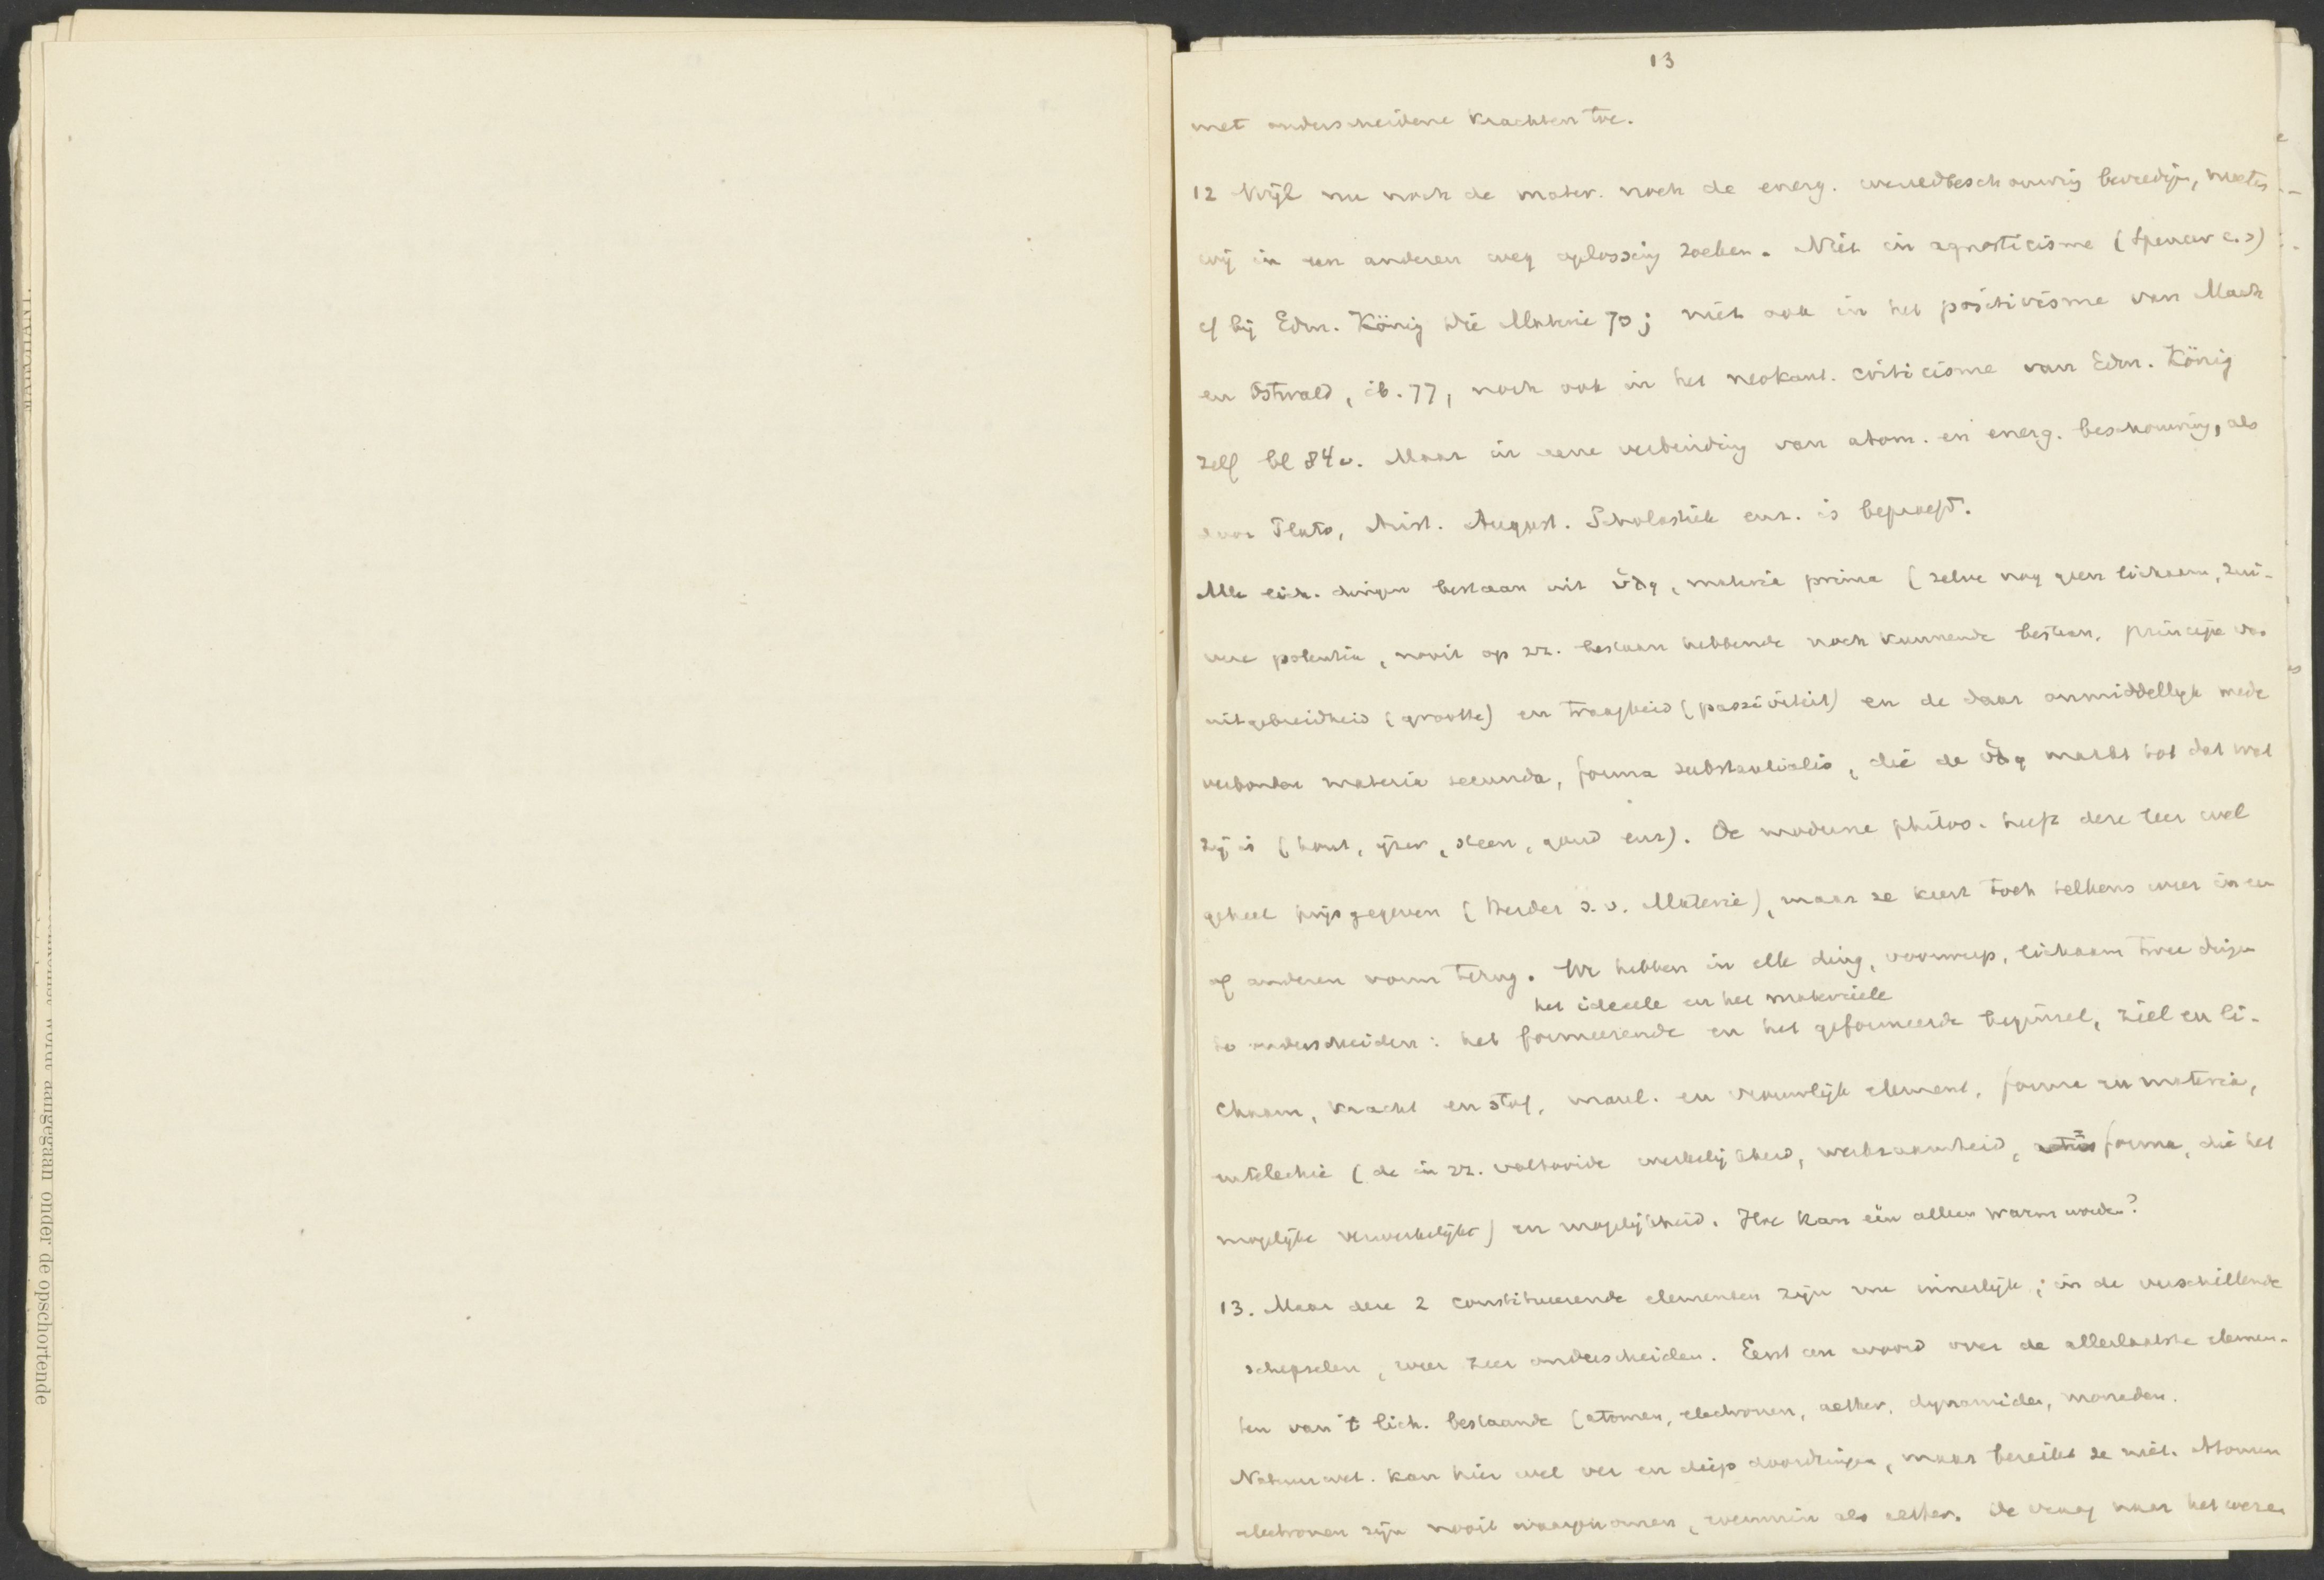 13
met onderscheidene krachten toe.
12 Wijl nu noch de mater. noch de energ. wereldbeschouwing bevredigen, moeten
wij in een anderen weg oplossing zoeken. Niet in agnosticisme (Spencer e.a)
cf bij Edm. König Die Materie 70; niet ook in het positivisme van Mach
en Ostwald, ib. 77, noch ook in het neokant. criticisme van Edm. König
zelf bl 84v. Maar in eene verbinding van atom. en energ. beschouwing, als
door Plato, Arist. August. Scholastiek enz. is beproefd.
Alle lich. dingen bestaan uit ὕλη, materia prima (zelve nog geen lichaam, zui-
vere potentia, nooit op zz. bestaan hebbende noch kunnende bestaan, principe van
uitgebreidheid (grootte) en traagheid (passiviteit) en de daar onmiddellijk mede
verbonden materia secunda, forma substantialis, die de ὕλη maakt tot dat wat
zij is (hout, ijzer, steen, goud enz). De moderne philos. heeft deze leer wel
geheel prijsgegeven (Herder s.v. Materie), maar ze keert toch telkens weer in een
of anderen vorm terug. We hebben in elk ding, voorwerp, lichaam twee dingen
het ideeele en het materieele
te onderscheiden: het formeerende en het geformeerde beginsel, ziel en li-
chaam, kracht en stof, manl. en vrouwlijk element, forma en materia,
entelechie (de in zz. voltooide werkelijkheid, werkzaamheid, forma, die het
mogelijke verwerkelijkt) en mogelijkheid. Hoe kan één alleen warm worden?
13. Maar deze 2 constitueerende elementen zijn nu innerlijk; in de verschillende
schepselen, weer zeer onderscheiden. Eerst een woord over de allerlaatste elemen-
ten van 't lich. bestaande (atomen, electronen, aether, dynamiden, monaden.
Natuurwet. kan hier wel ver en diep doordringen, maar bereikt ze niet. Atomen
electronen zijn nooit waargenomen, evenmin als aether. De vraag naar het wezen
aangegaan onder de opschortende